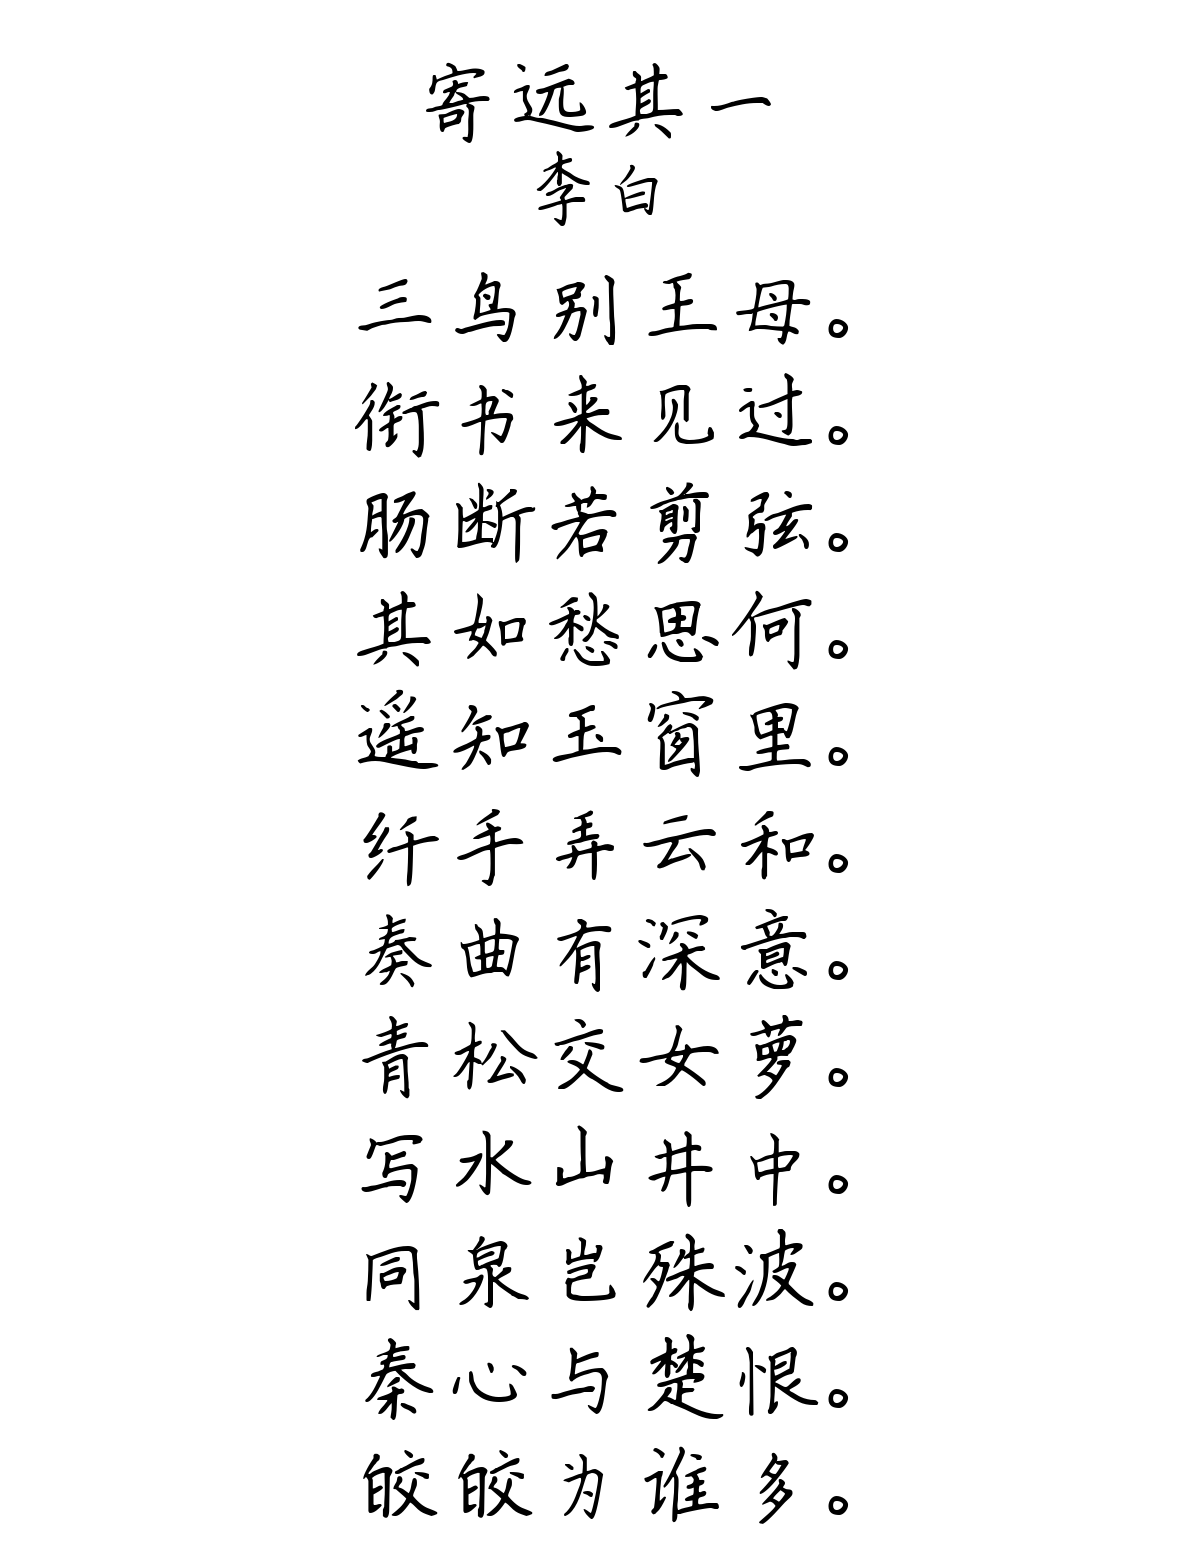 寄远其一
李白
三鸟别王母。
衔书来见过。
肠断若剪弦。
其如愁思何。
遥知玉窗里。
纤手弄云和。
奏曲有深意。
青松交女萝。
写水山井中。
同泉岂殊波。
秦心与楚恨。
皎皎为谁多。